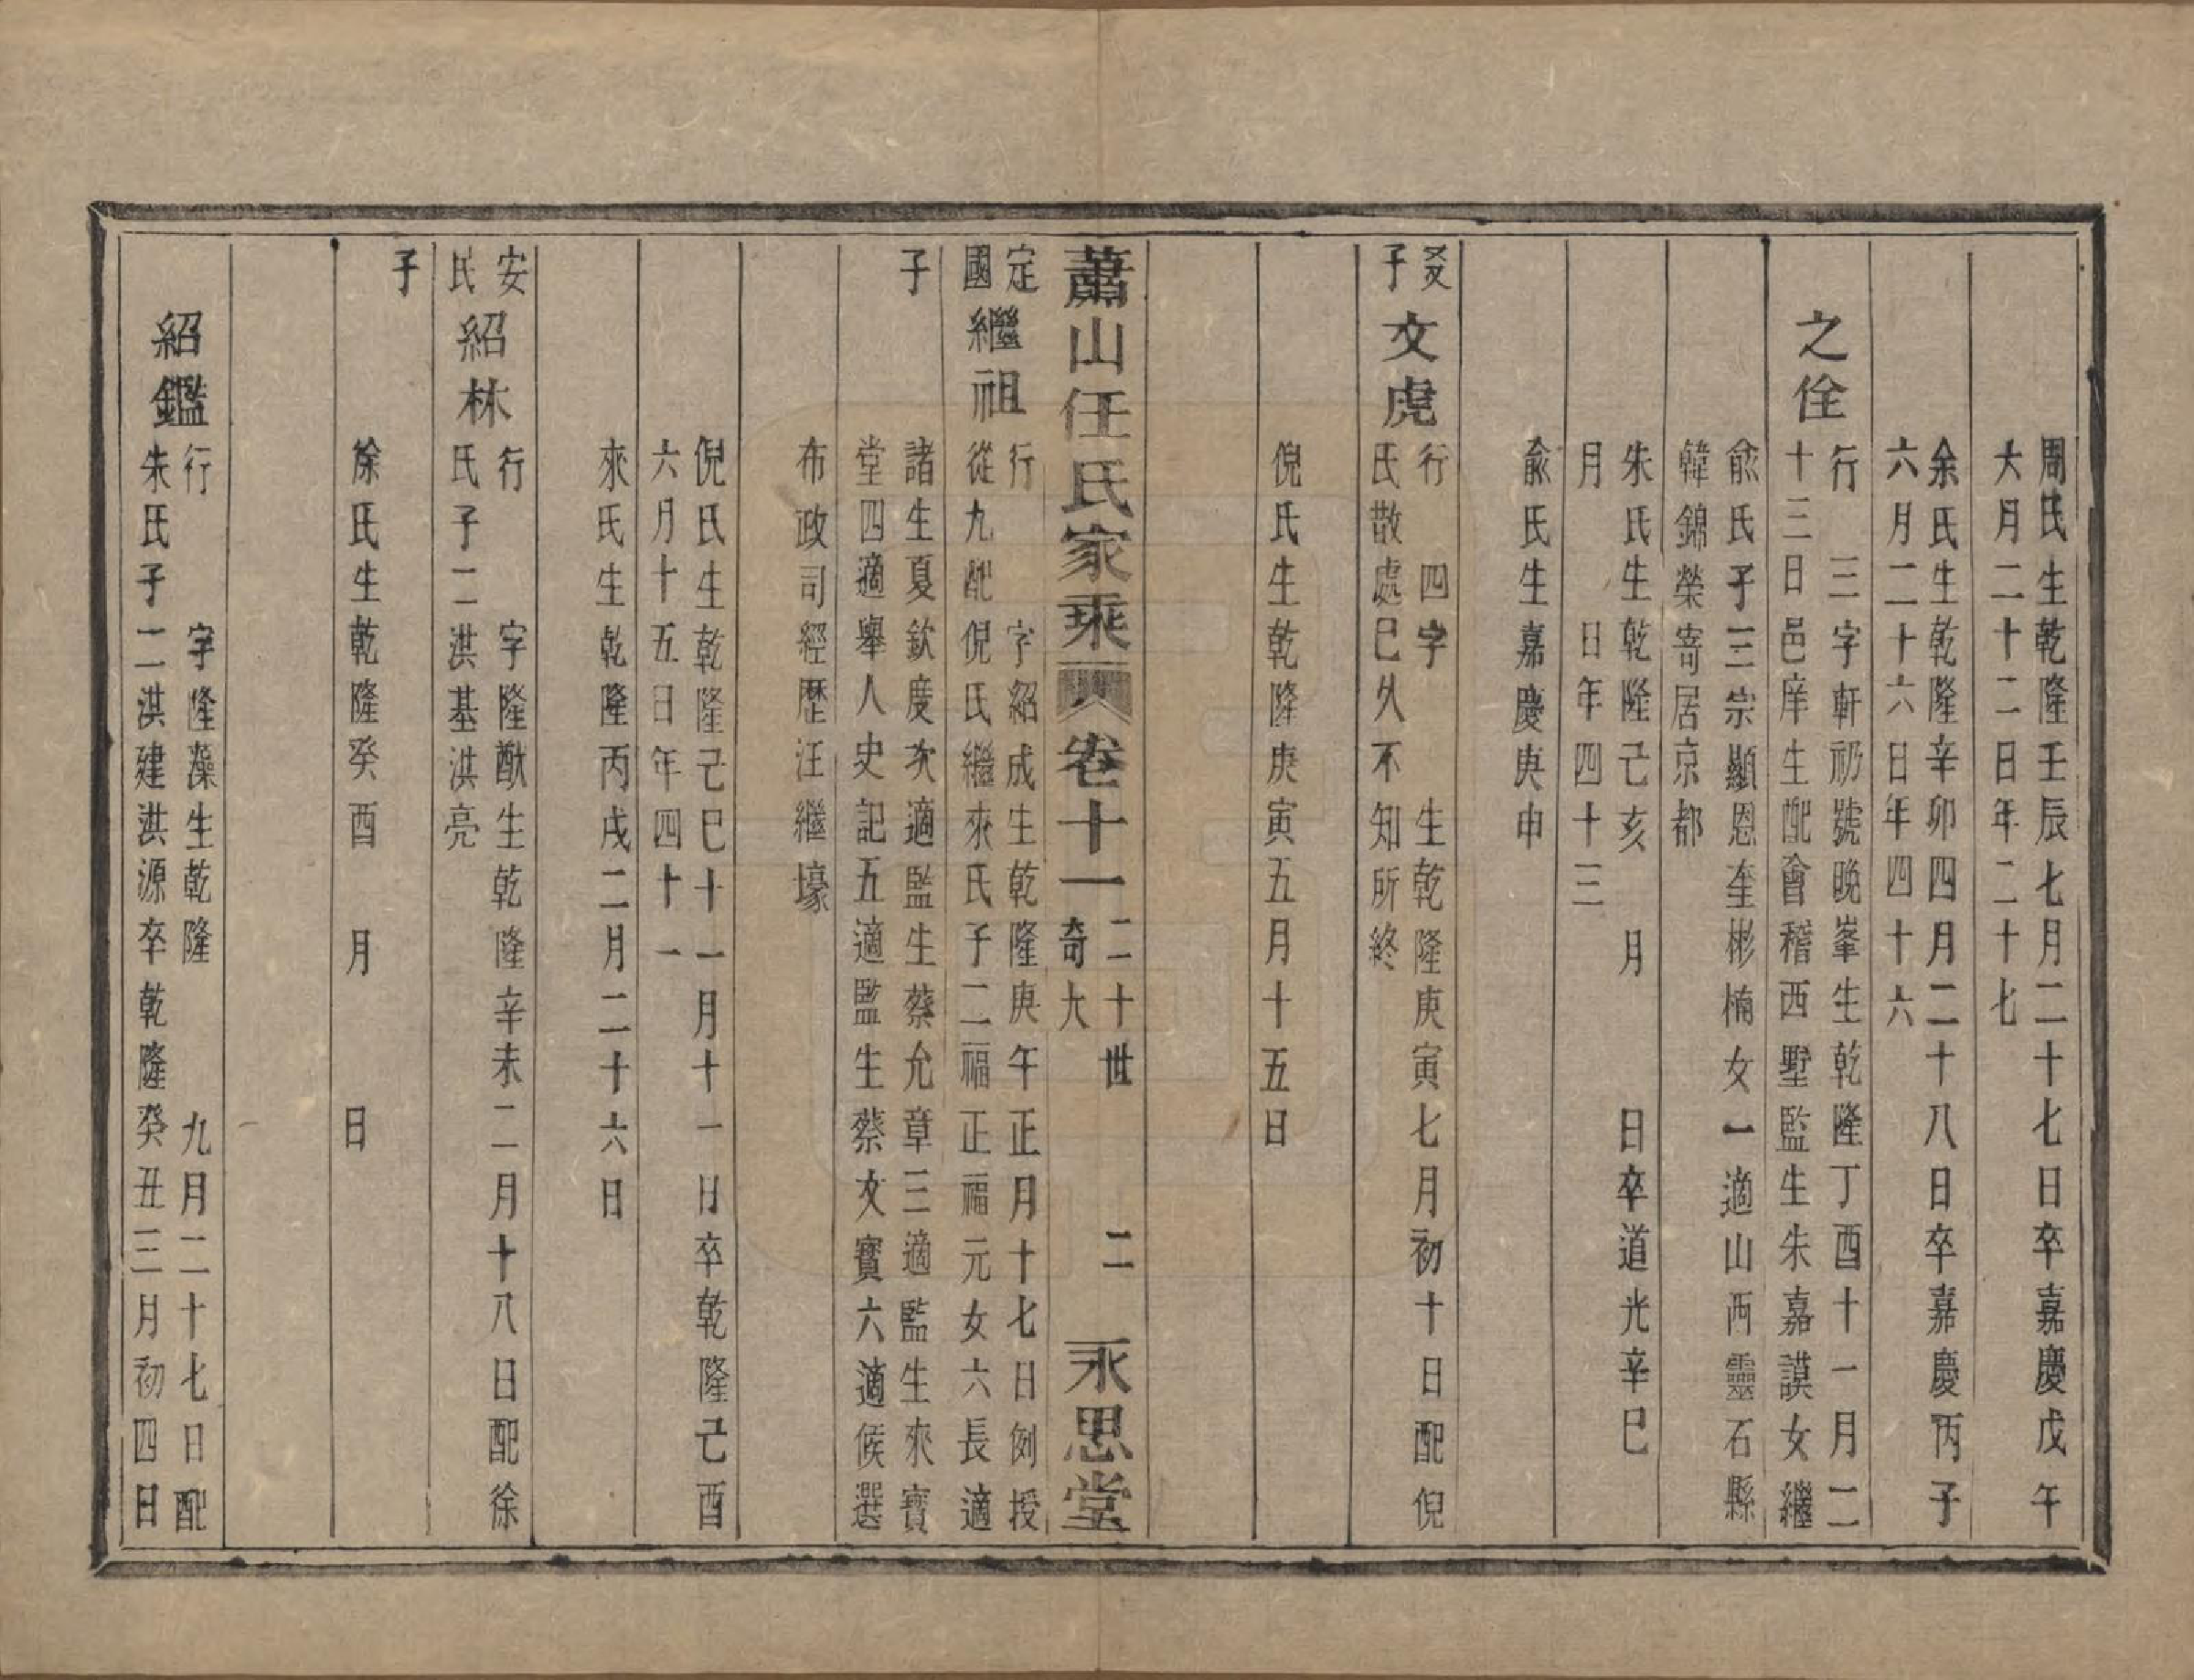 周氏生乾隆壬辰七月二十七日卒嘉慶戊午
六月二十二日年二十七
余氏生乾隆辛卯四月二十八日卒嘉慶丙子
六月二十六日年四十六
之佺
行 三字軒礽號晚峯生乾隆丁酉十一月二
十三日邑庠生配會稽西墅監生朱嘉謨女繼
俞氏子三宗顯恩奎彬楠女一適山西靈石縣
韓錦榮寄居京都
朱氏生乾隆己亥 月 日卒道光辛巳
月 日年四十三
俞氏生嘉慶庚申
㸚子
文虎
行 四字 生乾隆庚寅七月初十日配倪
氏散處已久不知所終
倪氏生乾隆庚寅五月十五日
蕭山任氏家乘 卷十一 二十世 奇大 二 永思堂
定國
繼祖
行 字紹成生乾隆庚午正月十七日例授
從九配倪氏繼來氏子二福正福元女六長適
子
諸生夏欽度次適監生蔡允章三適監生來寶
堂四適舉人史記五適監生蔡文寶六適候選
布政司經歷汪繼壕
倪氏生乾隆己巳十一月十一日卒乾隆己酉
六月十五日年四十一
來氏生乾隆丙戌二月二十六日
安民
紹林
行 字隆猷生乾隆辛未二月十八日配徐
氏子二洪基洪亮
子
徐氏生乾隆癸酉 月 日
紹鑑
行 字隆藻生乾隆 九月二十七日配
朱氏子二洪建洪源卒乾隆癸丑三月初四日